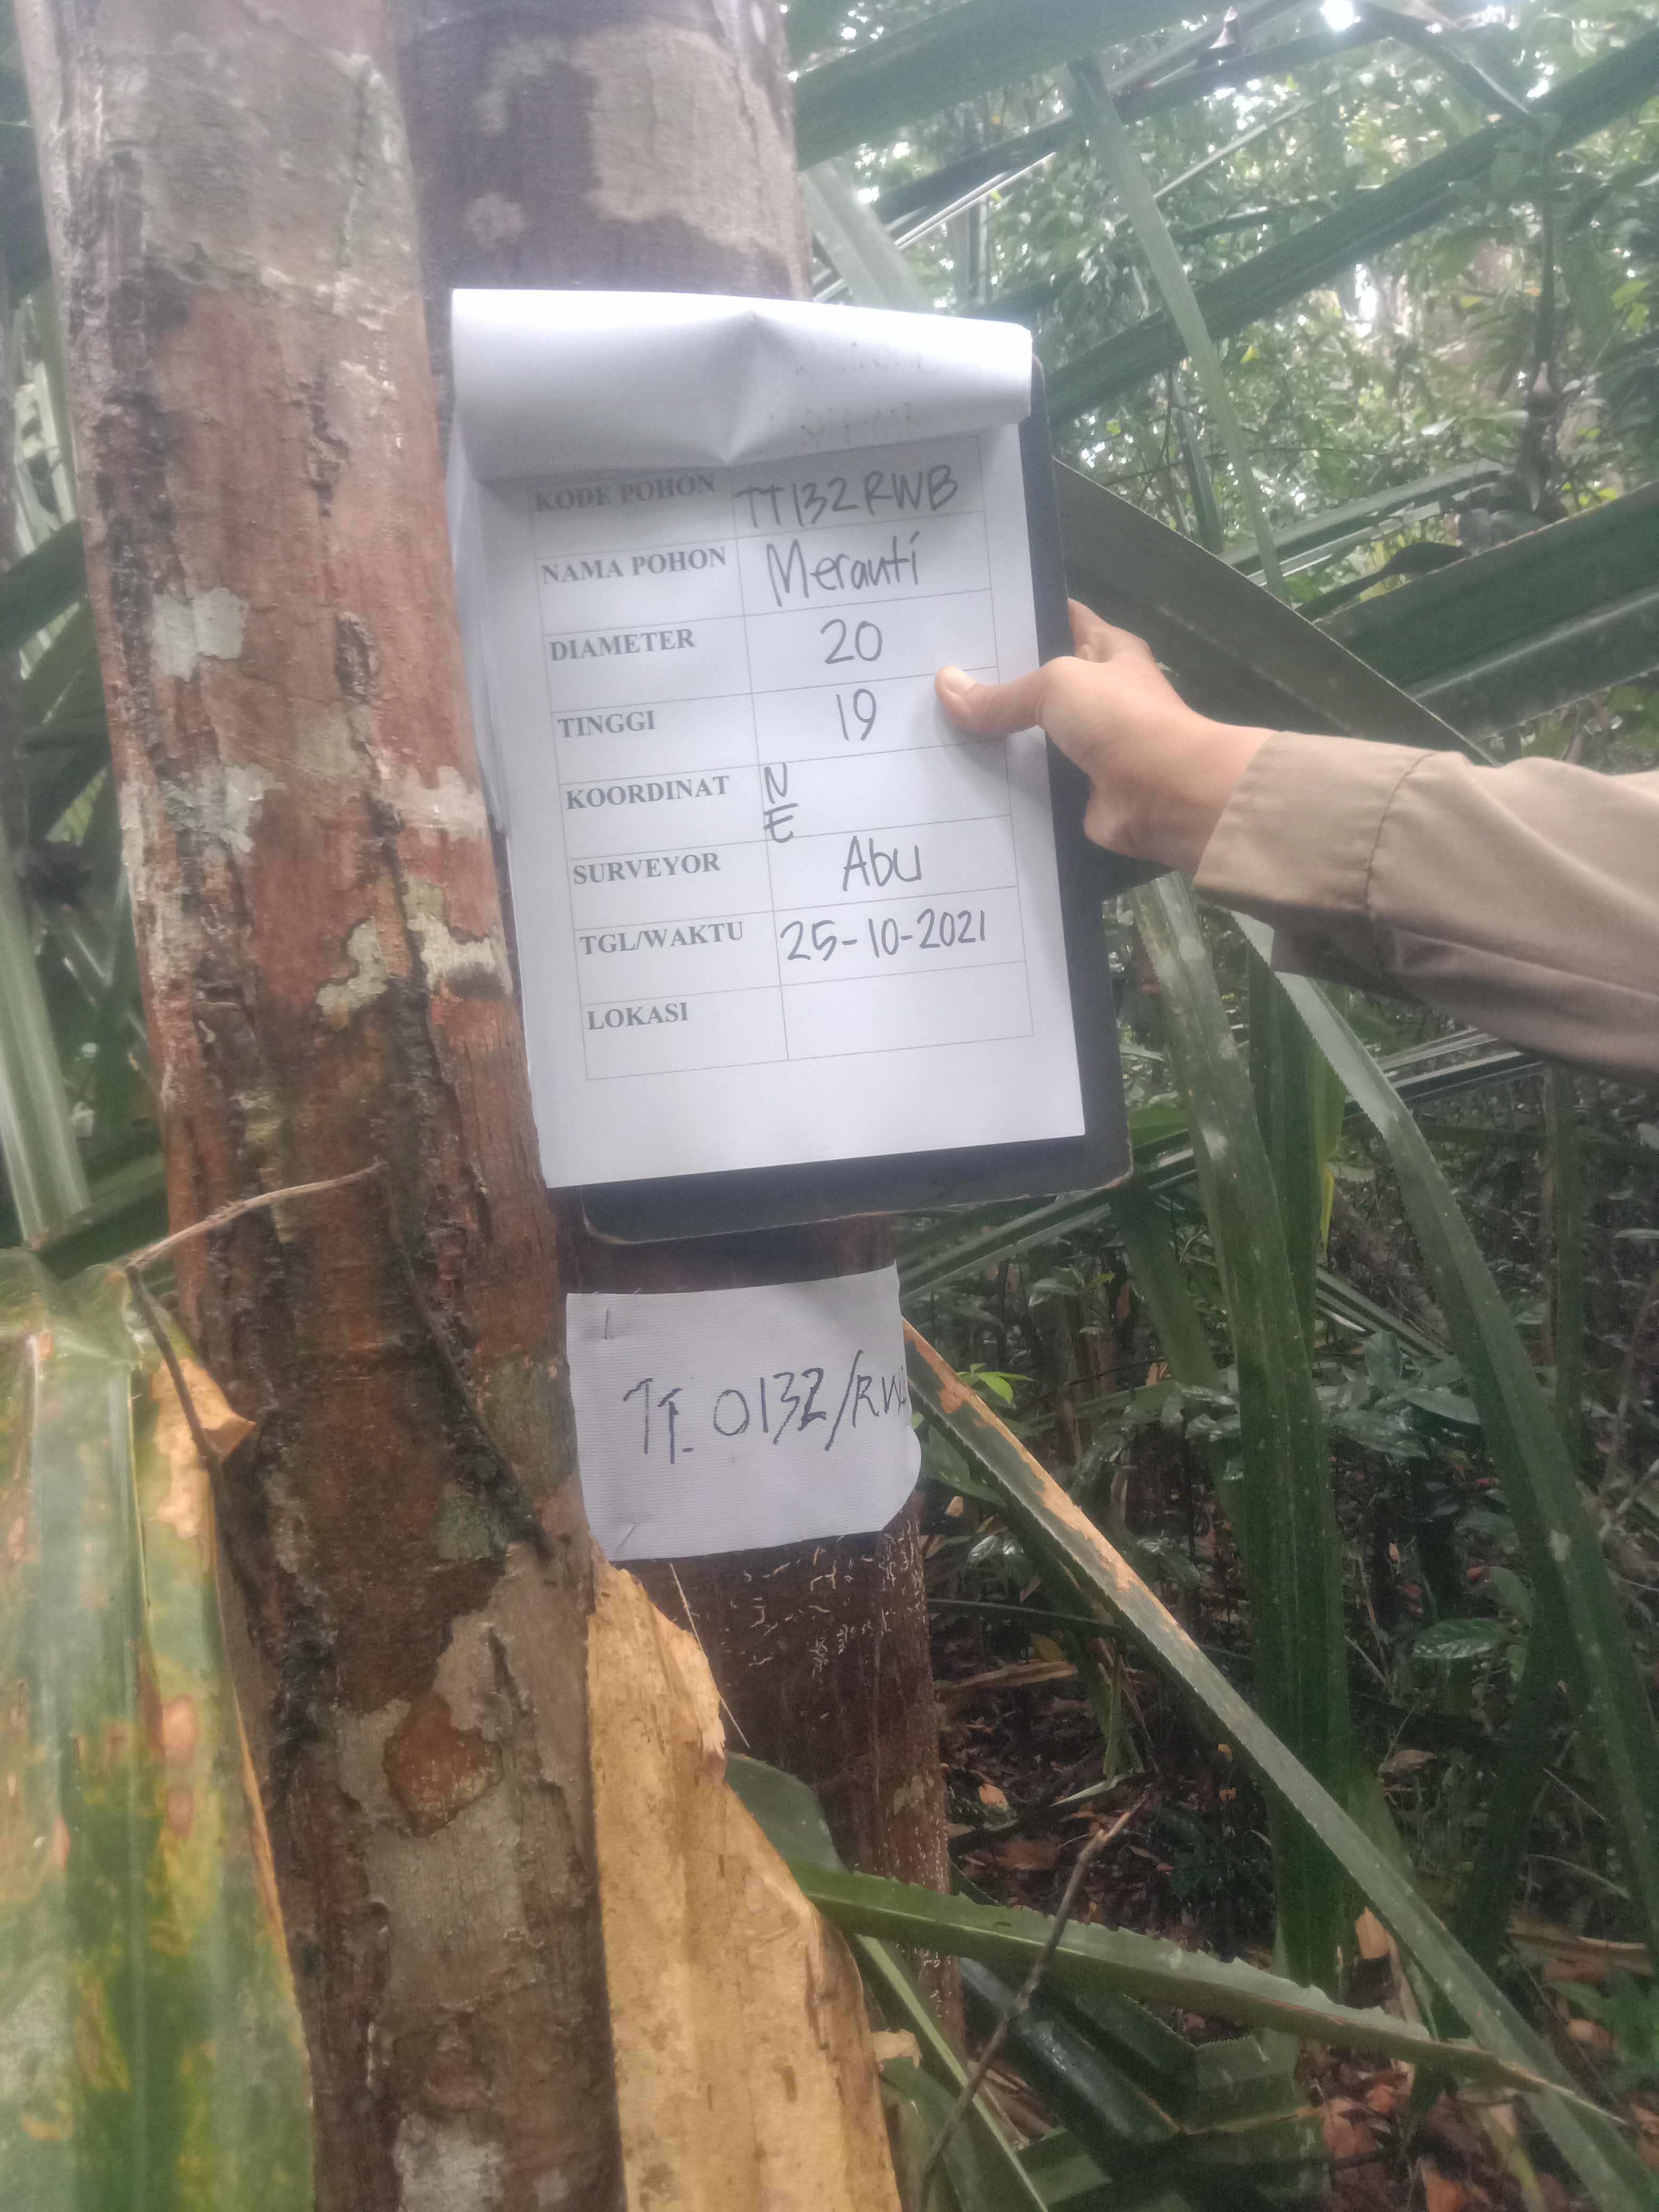 KODE POHON TT132RWB
NAMA POHON Meranti
DIAMETER 20
TINGGI 19
KOORDINAT N
E
SURVEYOR Abu
TGL/WAKTU 25-10-2021
LOKASI
TT_0132/RW